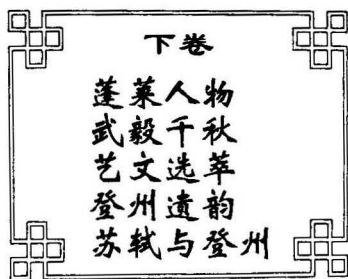 下卷
蓬莱人物
武毅千秋
艺文选萃
登州遗韵
苏轼与登州